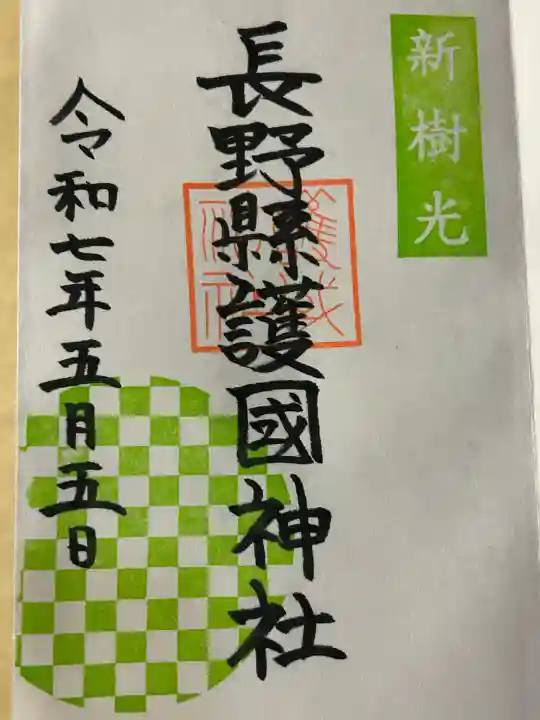 新樹光
長野縣護國神社
令和七年五月五日